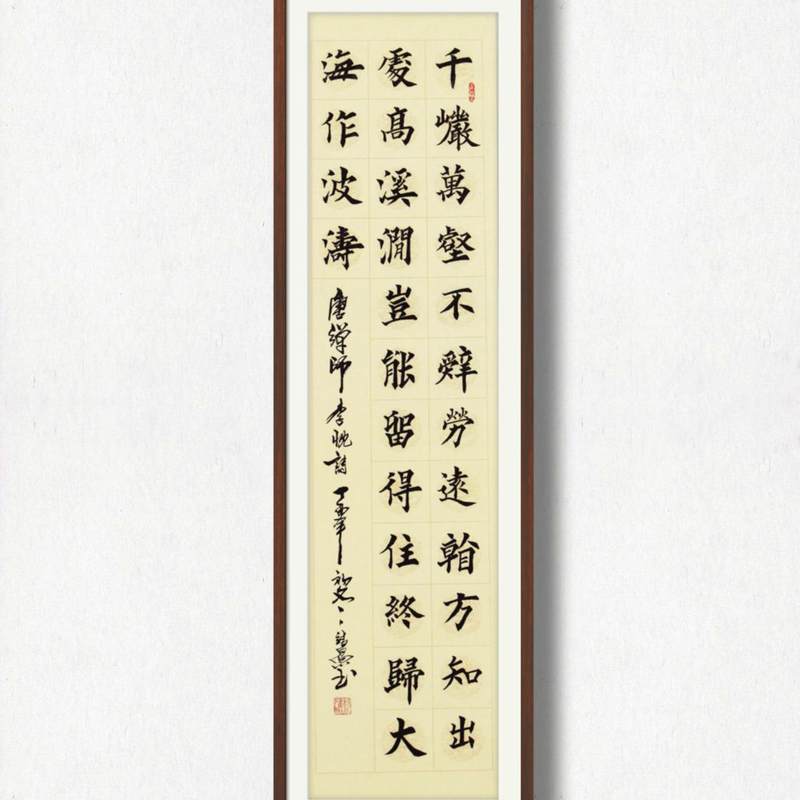 千巖萬壑不辭勞遠看方知出
處高溪澗豈能留得住終歸大
海作波濤
唐禪師李忱詩